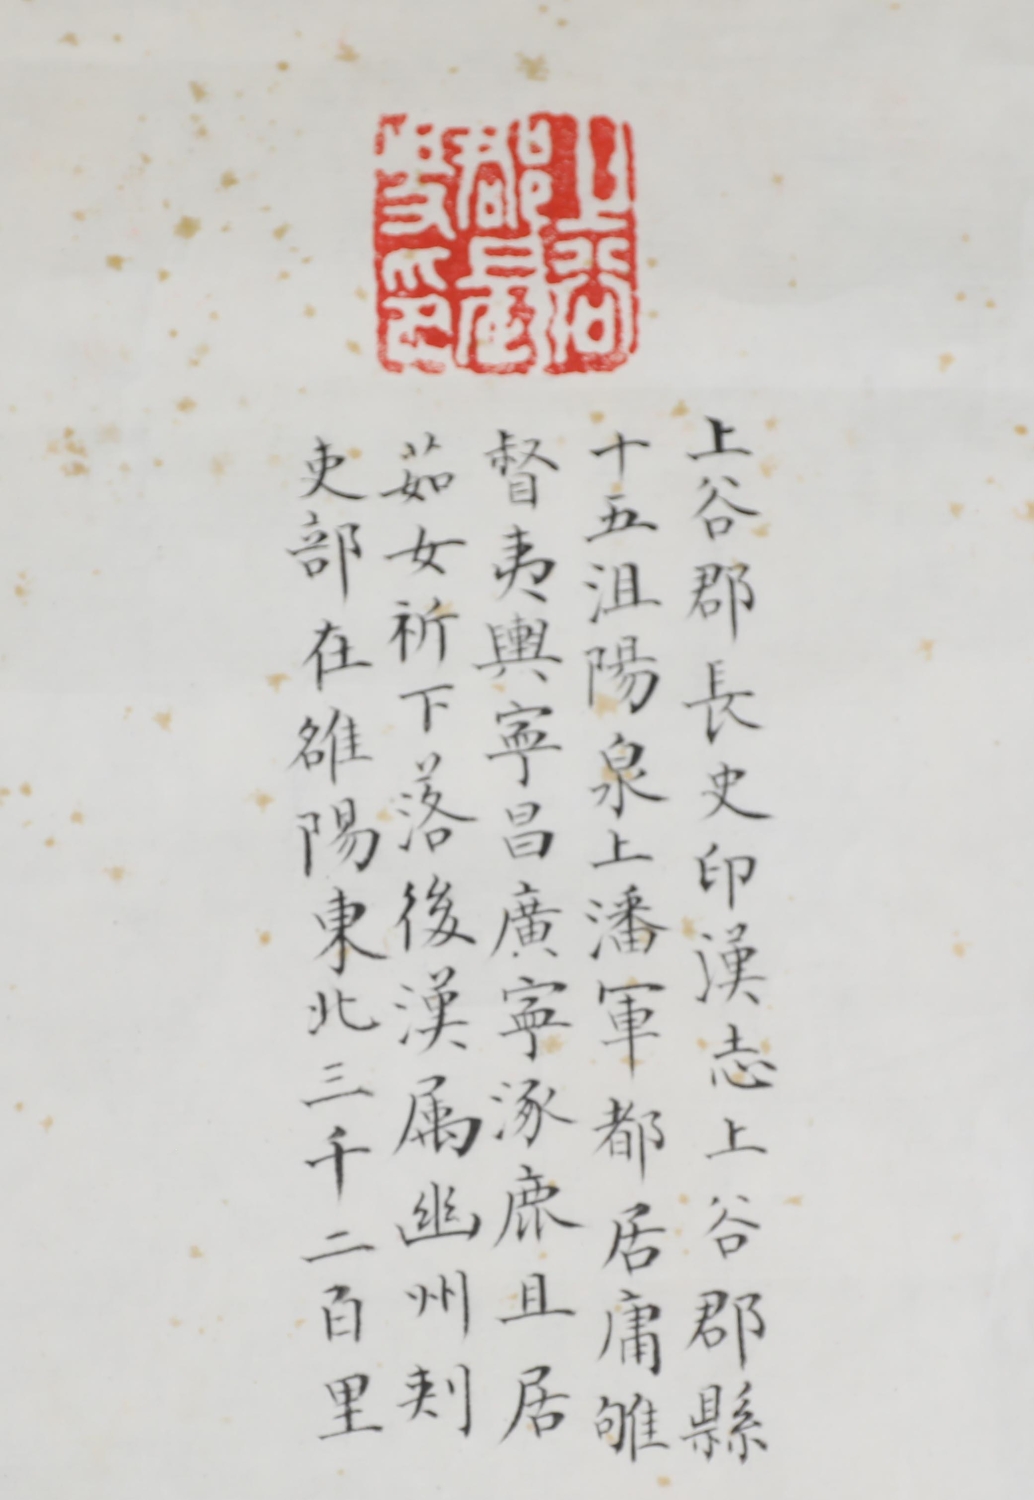 上谷郡長史印
上谷郡長史印漢志上谷郡縣
十五沮陽泉上潘軍都居庸雊
瞀夷輿寧昌廣寧涿鹿且居
茹女祈下落後漢属幽州刺
吏部在雒陽東北三千二百里